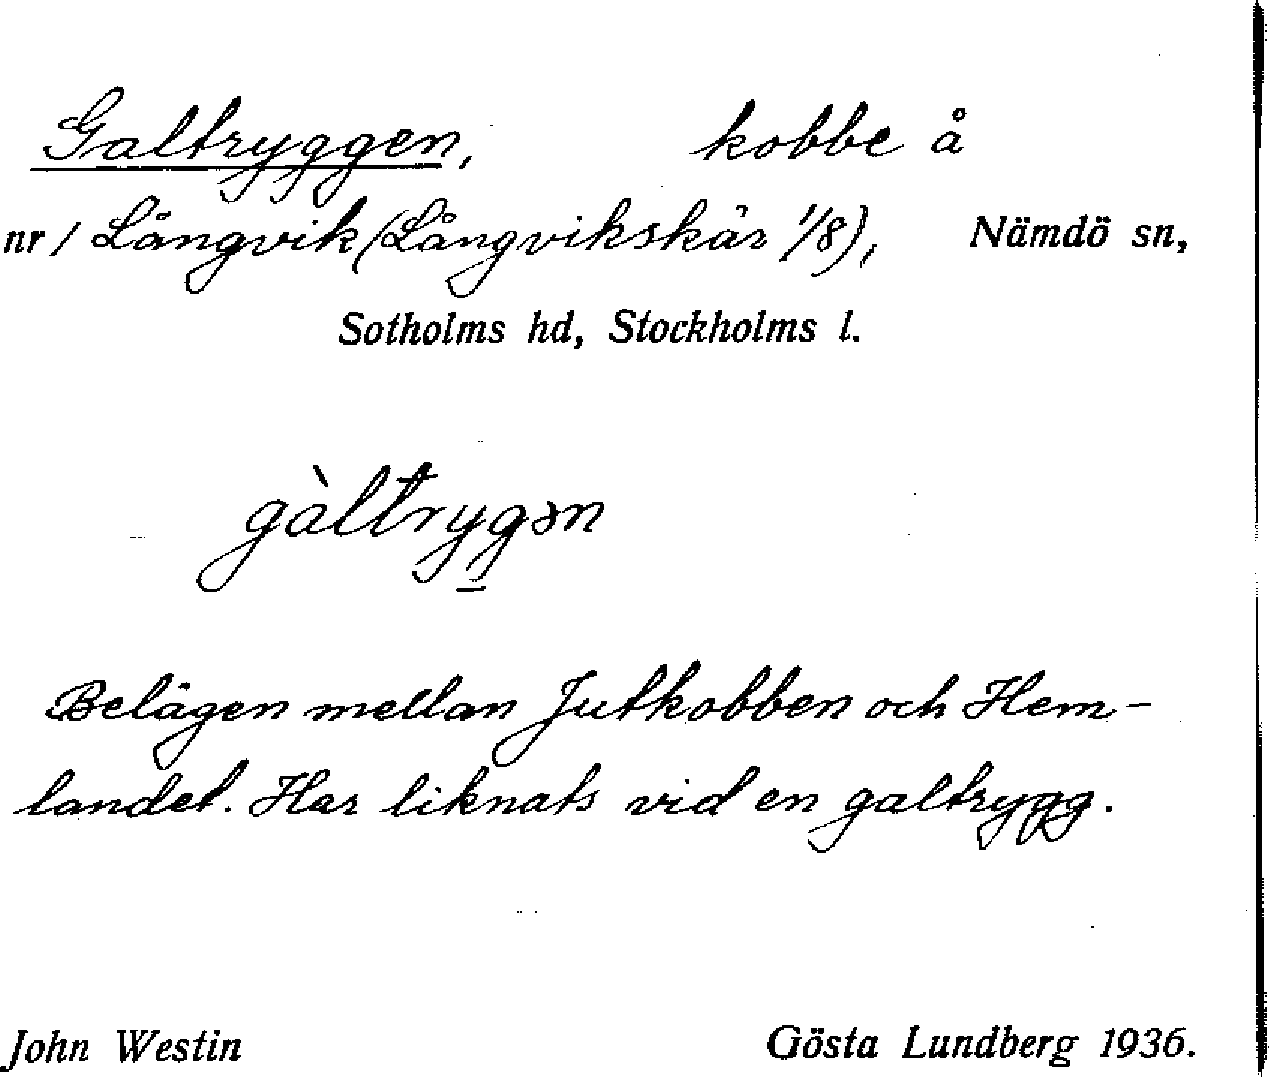 Galtryggen, kobbe å
nr 1 Långvik (Långvikskär 1/8), Nämdö sn,
Sotholms hd, Stockholms l.
gàltrygən
Belägen mellan Jutkobben och Hem-
landet. Har liknats vid en galtrygg.
John Westin Gösta Lundberg 1936.